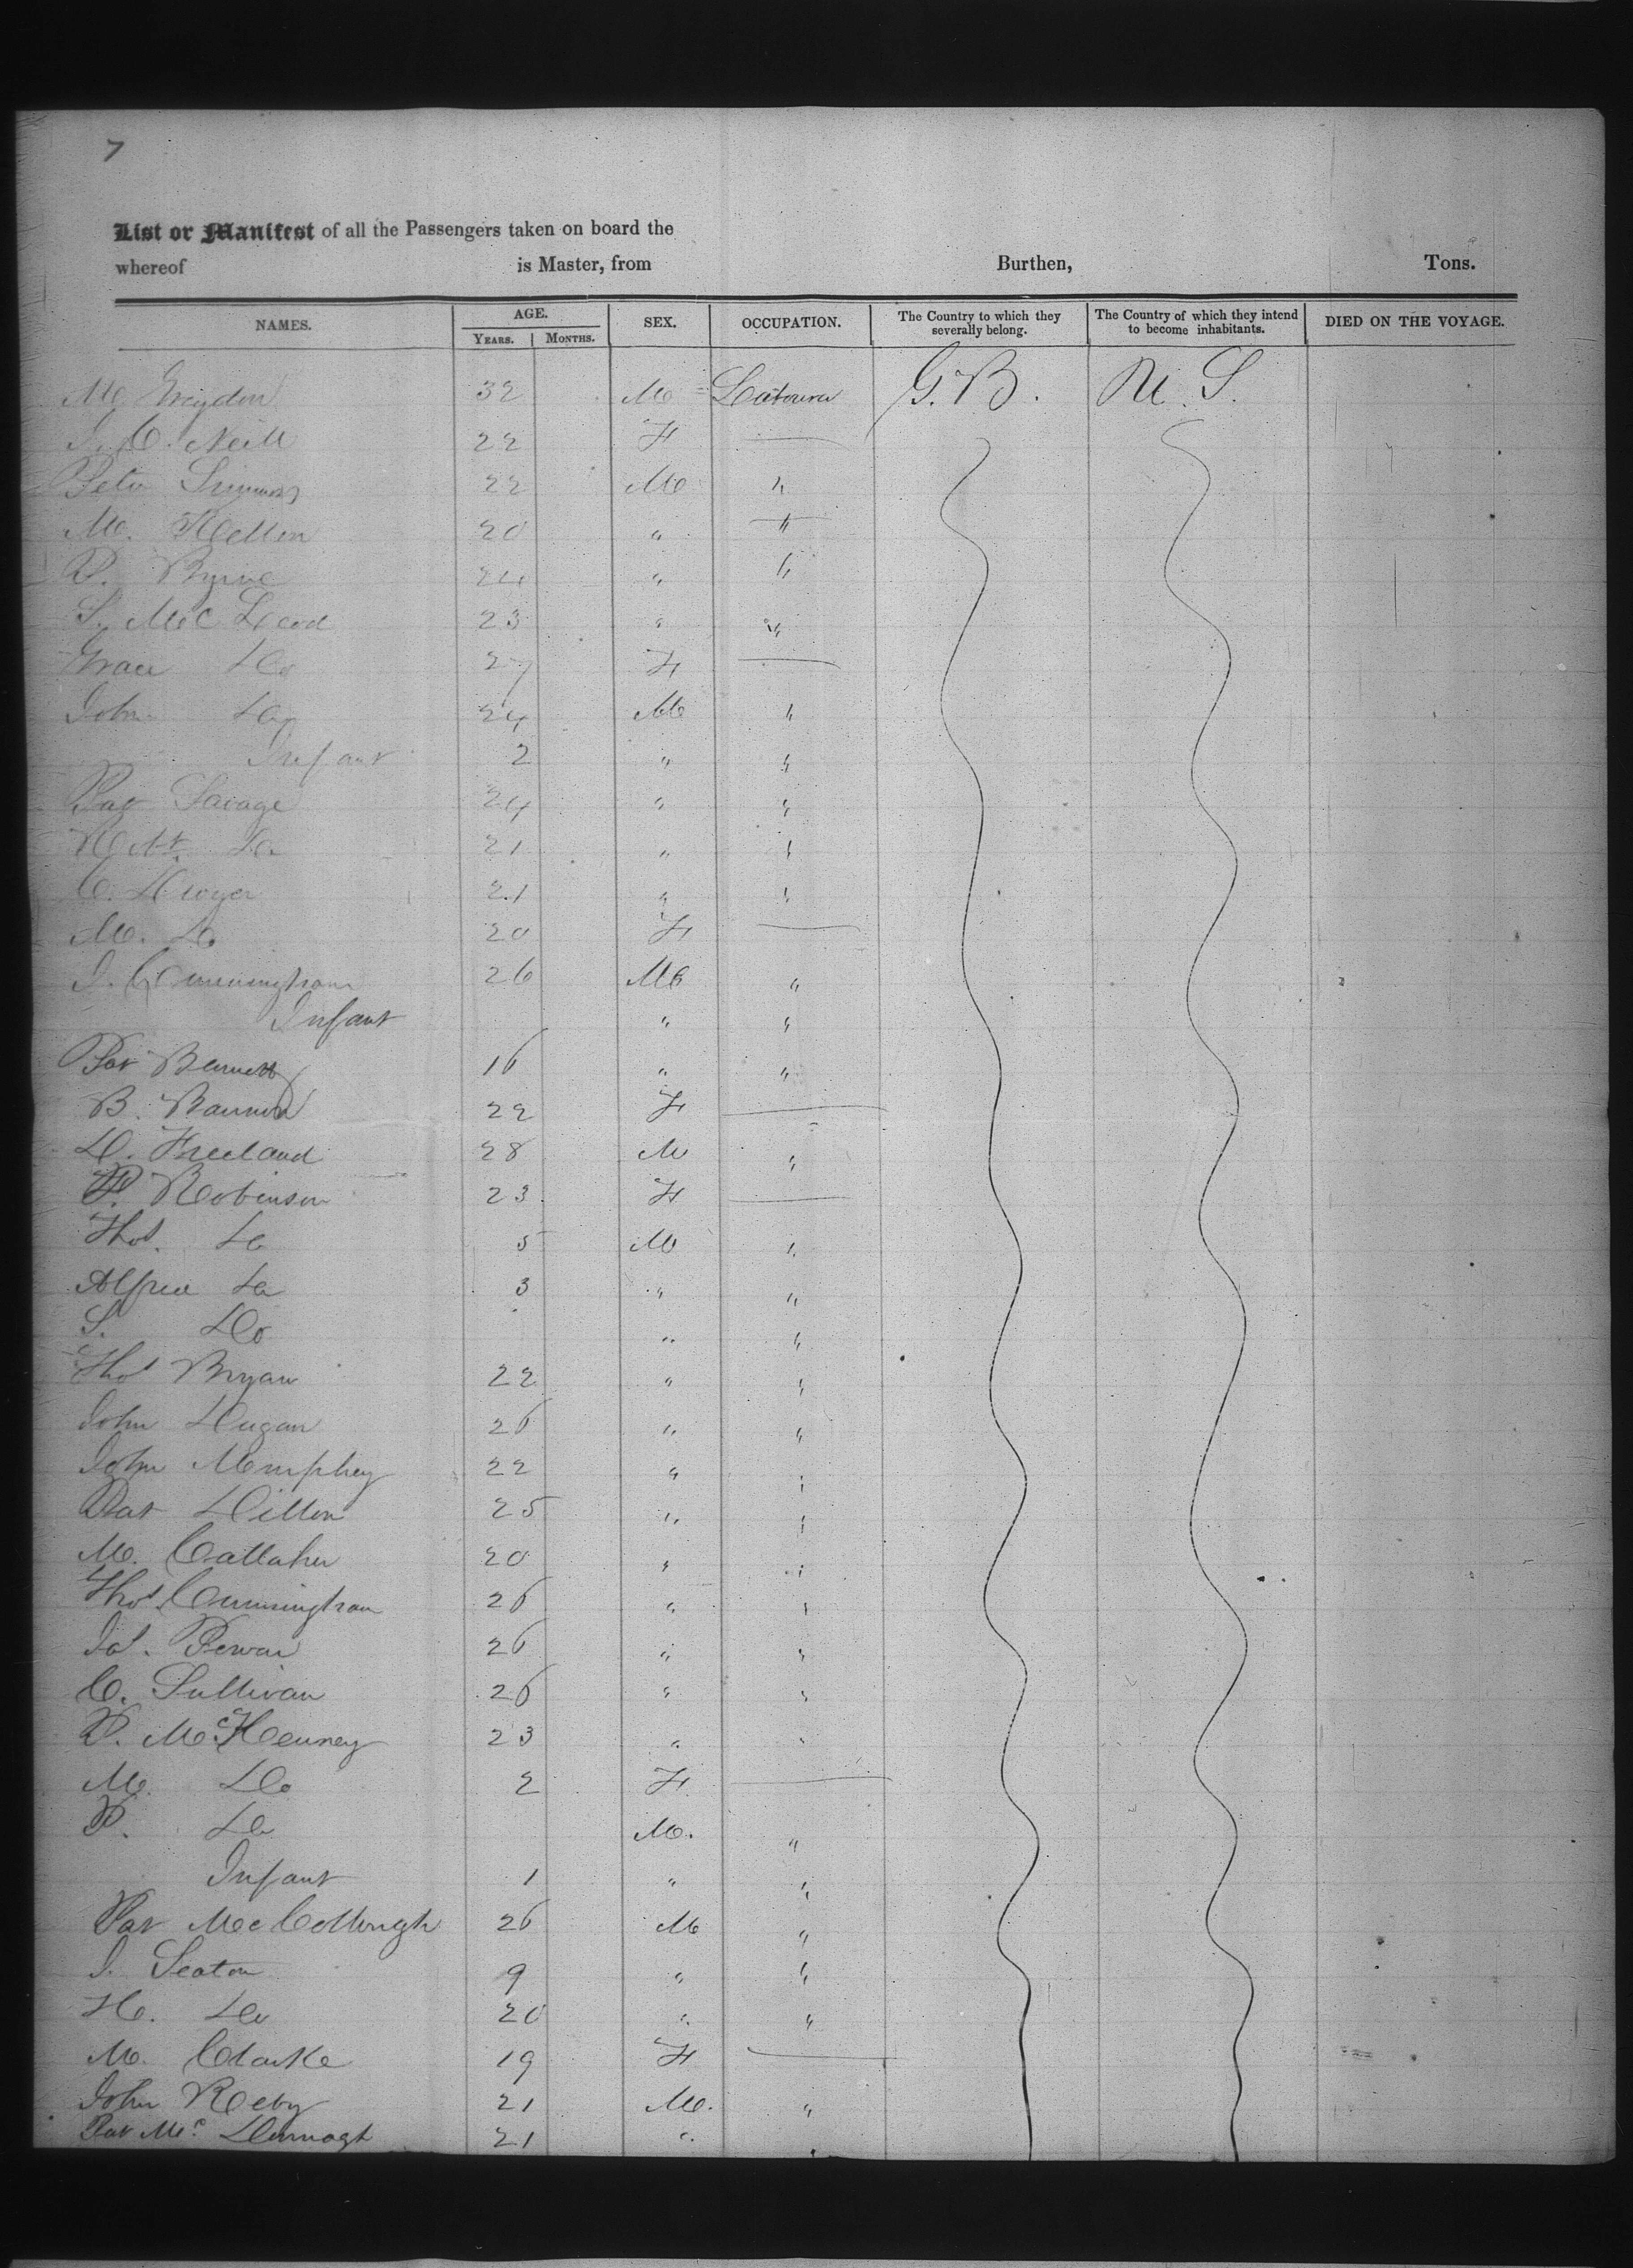 7
List or Manifest of all the Passengers taken on board the
whereof is Master, from Burthen, Tons.
NAMES. AGE. SEX. OCCUPATION. The Country to which they severally belong. The Country of which they intend to become inhabitants. DIED ON THE VOYAGE.
YEARS. MONTHS.
M. Greydon 32 M Labourer G.B. U.S.
J. O. Neill 22 F —
Peter Simmons 22 M "
M. Kellen 20 " "
P. Byrne 24 " "
S. McLeod 23 " "
Grace Do 27 F —
John Do 24 M "
Infant 2 " "
Pat Savage 24 " "
Do 21 " "
C. Dwyer 21 " "
M. Do 20 F —
J. Cunningham 26 M "
Infant " "
Pat Barnett 16 " "
B. Bannon 22 F —
D. Freeland 28 M "
P. Robinson 23 F —
Thos. Do 5 M "
Alfred Do 3 " "
S. Do " "
Thos Bryan 22 " "
John Dugan 26 " "
John Memphey 22 " "
Pat Dillon 25 " "
M. Callaher 20 " "
Thos. Cunningham 26 " "
Jas. 26 " "
C. Sullivan 26 " "
P. McKenney 23 " "
M. Do 2 F —
P. Do M. "
Infant 1 " "
Pat McCollough 26 M "
J. Seaton 9 " "
H. Do 20 " "
M. Clarke 19 F —
John Reby 21 M. "
Pat Mc. Dermogh 21 "